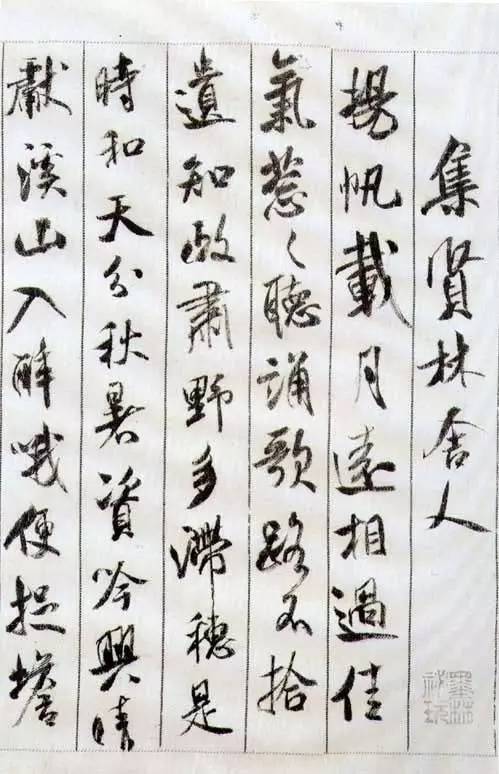 集賢林舍人
揚帆載月遠相過佳
氣葱〻聽誦歌路不拾
遺知政肅野多滯穗是
時和天分秋暑資吟興晴
獻溪山入醉哦便捉蟾
墨林
祕玩